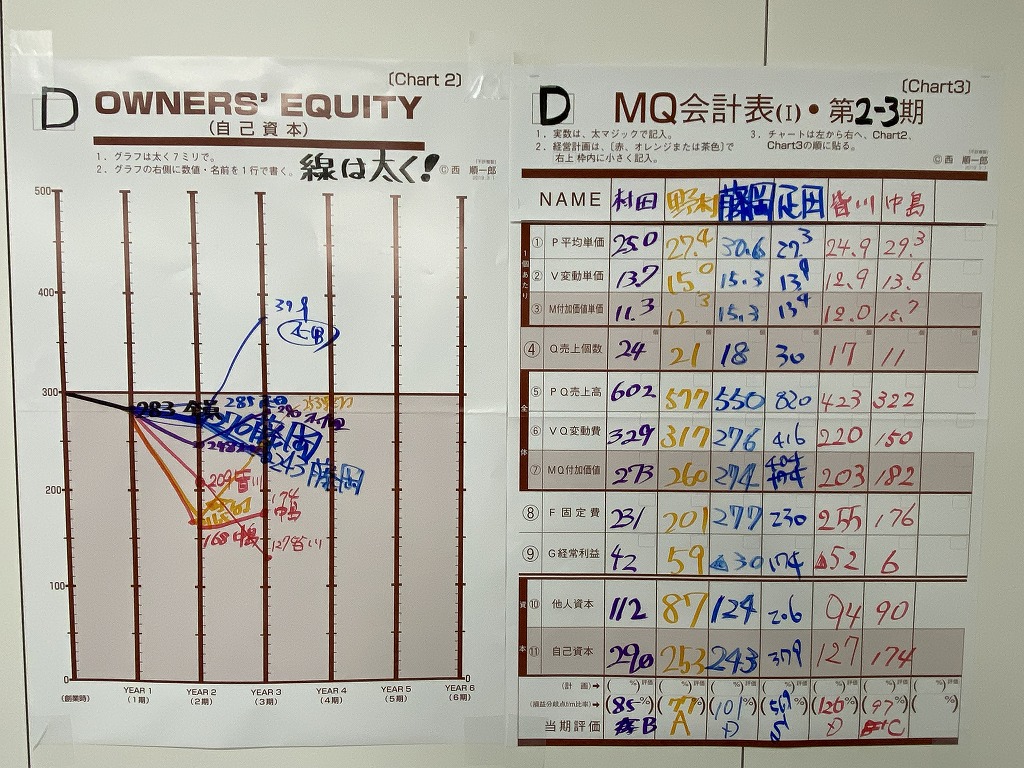 (Chart 2)
D OWNERS' EQUITY
(自己資本)
1. グラフは太く7ミリで。
2. グラフの右側に数値・名前を1行で書く。
線は太く!
©西 順一郎
500
400
300
200
100
0
0
(創業時)
YEAR 1 (1期)
YEAR 2 (2期)
YEAR 3 (3期)
YEAR 4 (4期)
YEAR 5 (5期)
YEAR 6 (6期)
283
243 藤岡
209 皆川
174 中島
168 中島
127 皆川
(Chart3)
D MQ会計表(I)・第2-3期
1. 実数は、太マジックで記入。
2. 経営計画は、〔赤、オレンジまたは茶色〕で右上 枠内に小さく記入。
3. チャートは左から右へ、Chart2、Chart3の順に貼る。
©西 順一郎
NAME 村田 野村 藤岡 疋田 皆川 中島
1個あたり
① P 平均単価 25.0 27.4 30.6 27.3 24.9 29.3
② V変動単価 13.7 15.0 15.3 13.9 12.9 13.6
③ M付加価値単価 11.3 12.3 15.3 13.4 12.0 15.7
④ Q売上個数 24 21 18 30 17 11
全体
⑤ PQ売上高 602 577 550 820 423 322
⑥ VQ変動費 329 317 276 416 220 150
⑦ MQ付加価値 273 260 274 404 203 182
⑧ F 固定費 231 201 277 230 255 176
⑨ G経常利益 42 59 ▲30 174 ▲52 6
資本
⑩ 他人資本 112 87 124 206 94 90
⑪ 自己資本 290 253 243 379 127 174
(計 画)→ ( %)評価 ( %)評価 ( %)評価 ( %)評価 ( %)評価 ( %)評価 ( %)評価
(損益分岐点f/m比率)→ (85%) (77%) (101%) (126%) (97%) ( %)
当期評価 B A D D C